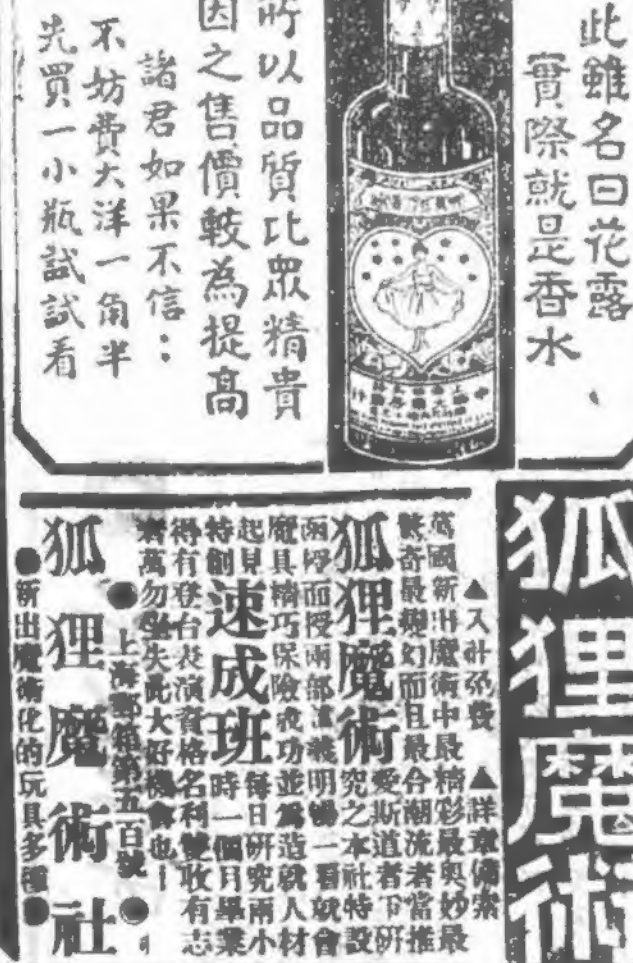 此雖名曰花露、
實際就是香水
所以品質比眾精貴
因之售價較為提高
諸君如果不信：
不妨費大洋一角半
先買一小瓶試試看
狐狸魔術
▲入社免費 ▲詳章備索
萬國新出魔術中最精彩最奧妙最
繁奇最變幻而且最合潮流者當推
狐狸魔術
愛斯道者下研
究之本社特設
函授面授兩部講義明暢一看就會
魔具精巧保險成功並為造就人材
起見
特創速成班
每日研究兩小
時一個月畢業
得有登台表演資格名利雙收有志
者萬勿坐失此大好機會也
●上海郵箱第五百號●
狐狸魔術社
●新出魔術化的玩具多種●